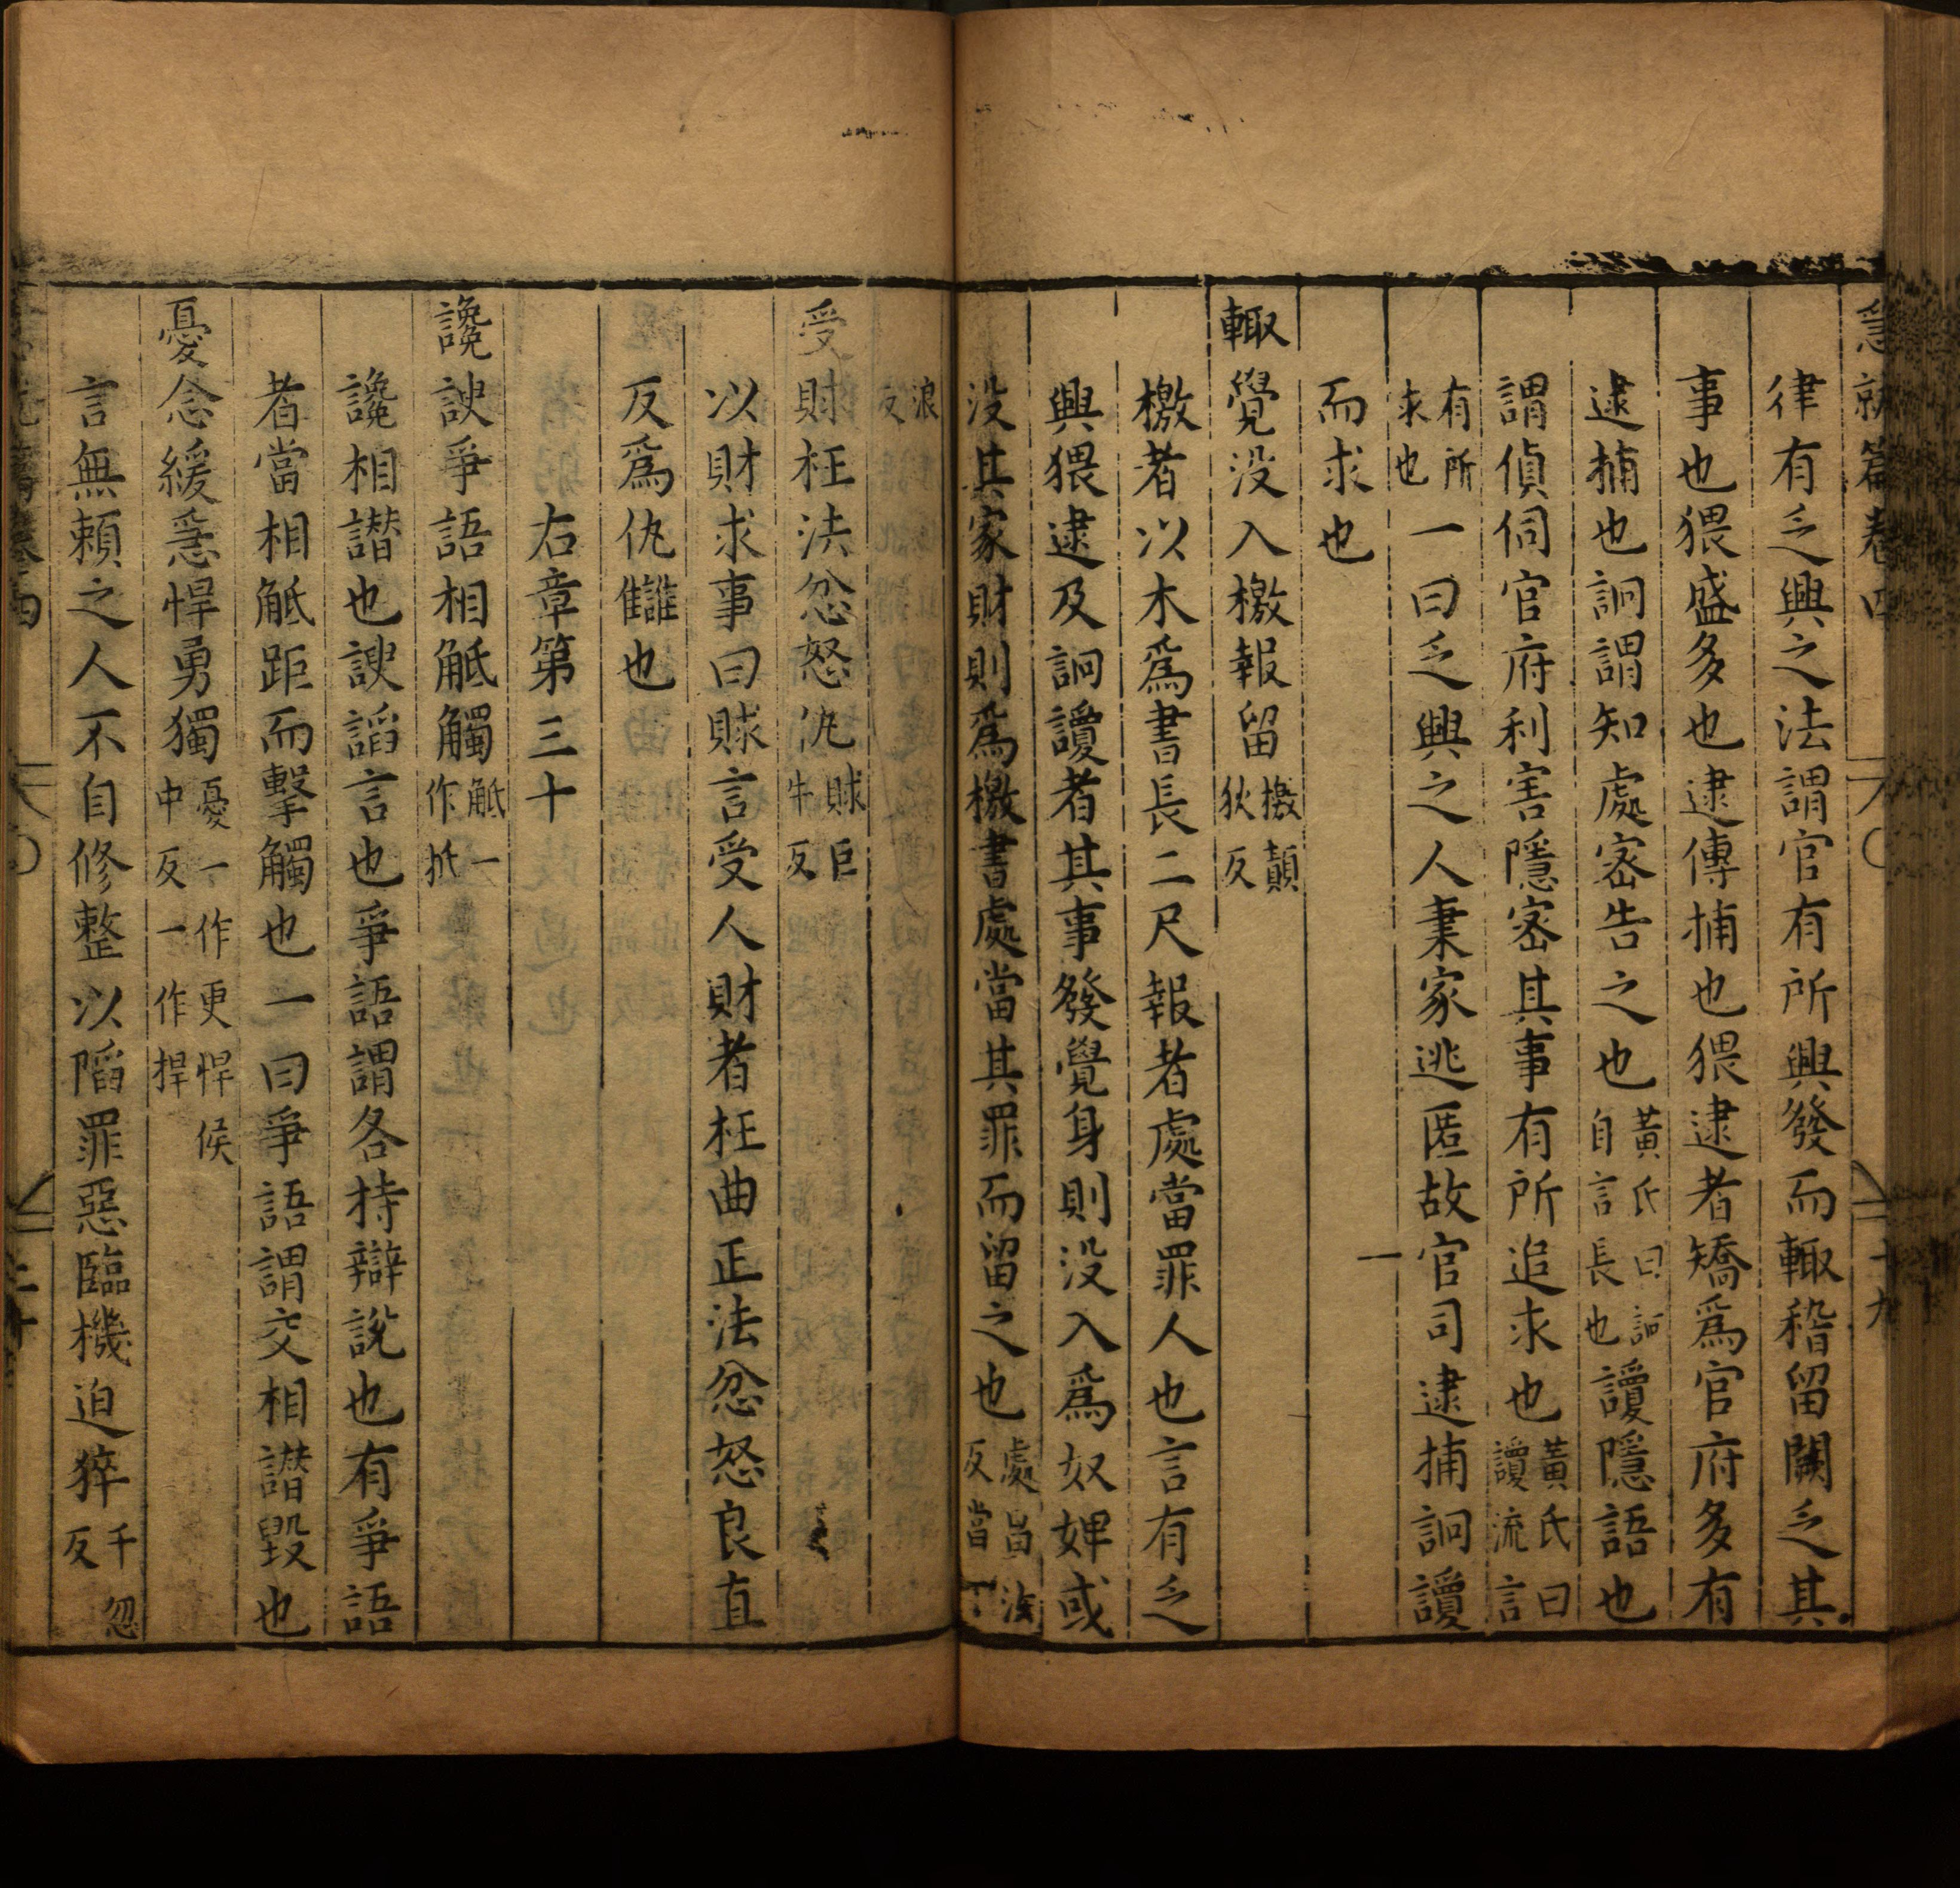 急就篇卷四
十九
律有乏興之法謂官有所興發而輙稽留闕乏其
事也猥盛多也逮傳捕也猥逮者矯爲官府多有
逮捕也詗謂知處宻告之也黃氏曰詗自言長也讂隱語也
謂偵伺官府利害隱宻其事有所追求也黃氏曰讂流言
有所求也一曰乏興之人棄家逃匿故官司逮捕詗讂
而求也
輙覺没入檄報留檄顛狄反
檄者以木爲書長二尺報者處當罪人也言有乏
興猥逮及詗讂者其事發覺身則没入爲奴婢或
没其家財則爲檄書處當其罪而留之也處昌汝反當丁
浪反
受財枉法忿怒仇賕巨牛反
以財求事曰賕言受人財者枉曲正法忿怒良直
反爲仇讎也
右章第三十
讒諛爭語相觝觸觝一作抵
讒相譖也諛謟言也爭語謂各持辯説也有爭語
者當相觝距而擊觸也一曰爭語謂交相譖毀也
憂念緩急悍勇獨憂一作更悍侯中反一作捍
言無頼之人不自修整以䧟罪惡臨機迫猝千忽反